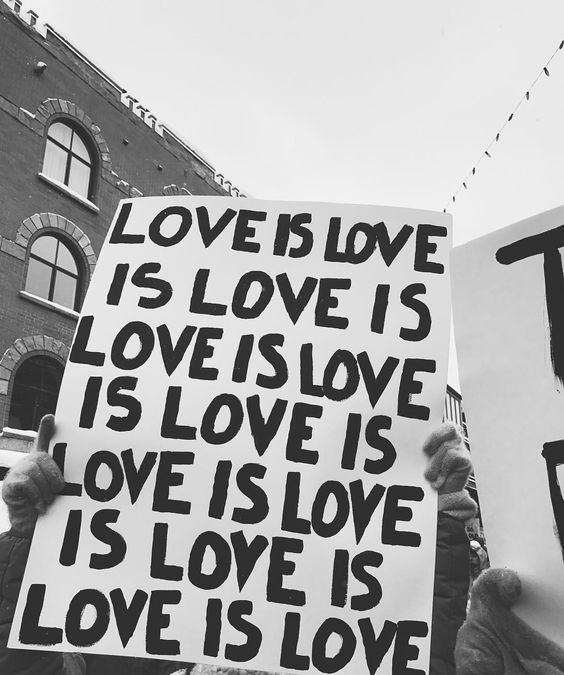 LOVE IS LOVE
IS LOVE IS
LOVE IS LOVE
IS LOVE IS
LOVE IS LOVE
IS LOVE IS
LOVE IS LOVE